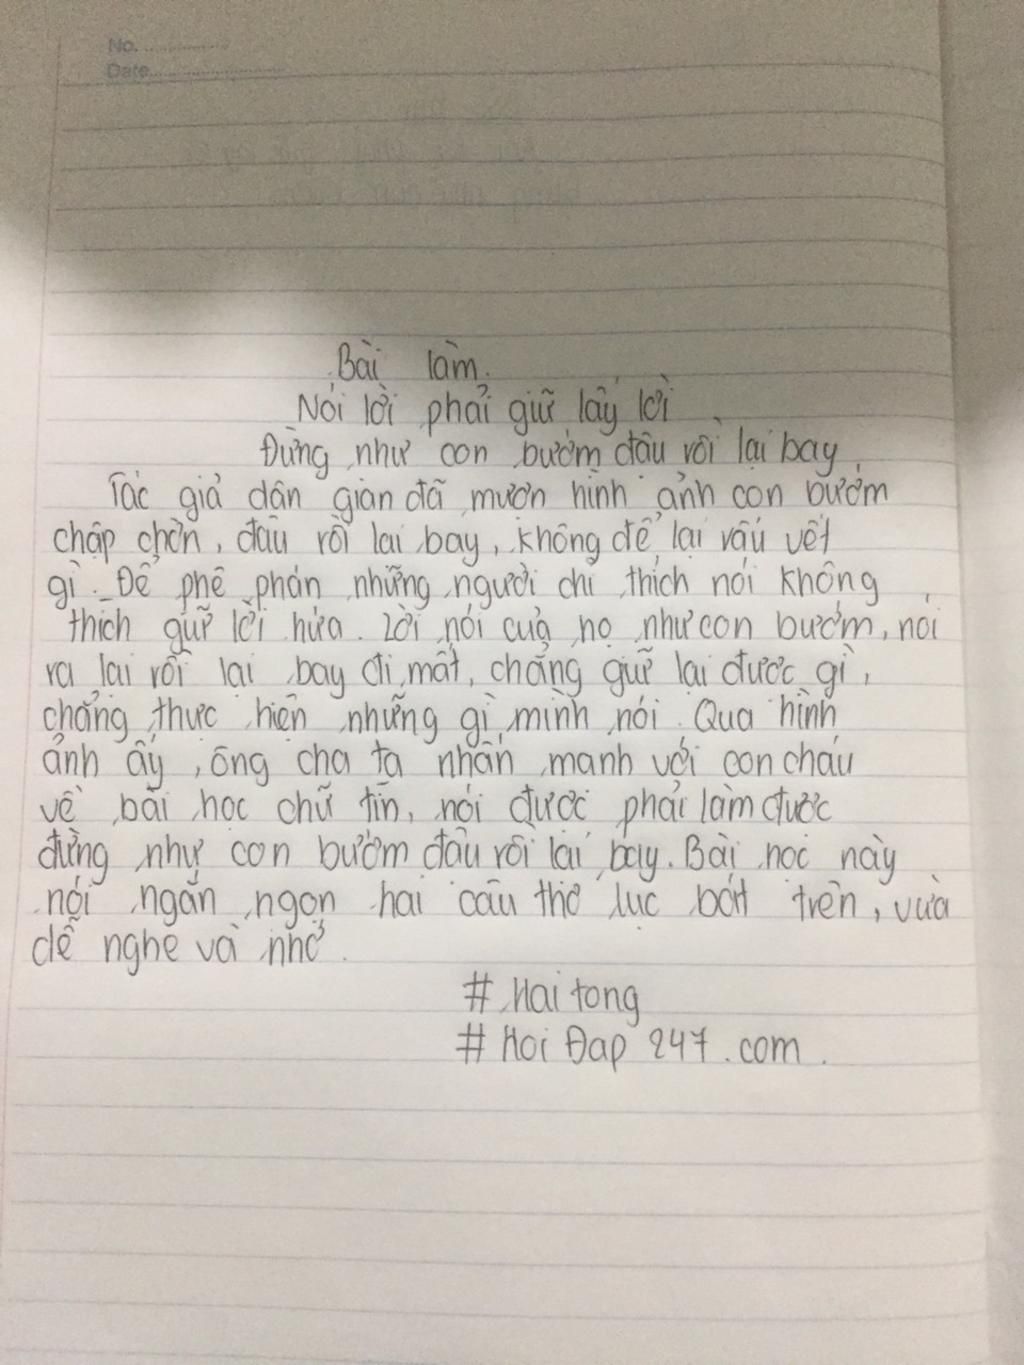 No.
Date
Bài làm.
Nói lời phải giữ lấy lời
Đừng như con bướm đậu rồi lại bay
Tác giả dân gian đã mượn hình ảnh con bướm
chập chờn, đậu rồi lại bay, không để lại dấu vết
gì. Để phê phán những người chỉ thích nói không
thích giữ lời hứa. Lời nói của họ như con bướm, nói
ra lại rồi lại bay đi mất, chẳng giữ lại được gì,
chẳng thực hiện những gì mình nói. Qua hình
ảnh ấy, ông cha ta nhấn mạnh với con cháu
về bài học chữ tín, nói được phải làm được
đừng như con bướm đậu rồi lại bay. Bài học này
nói ngắn ngọn hai câu thơ lục bát trên, vừa
dễ nghe và nhớ.
# Hai tong
# Hoi Đap 247.com.